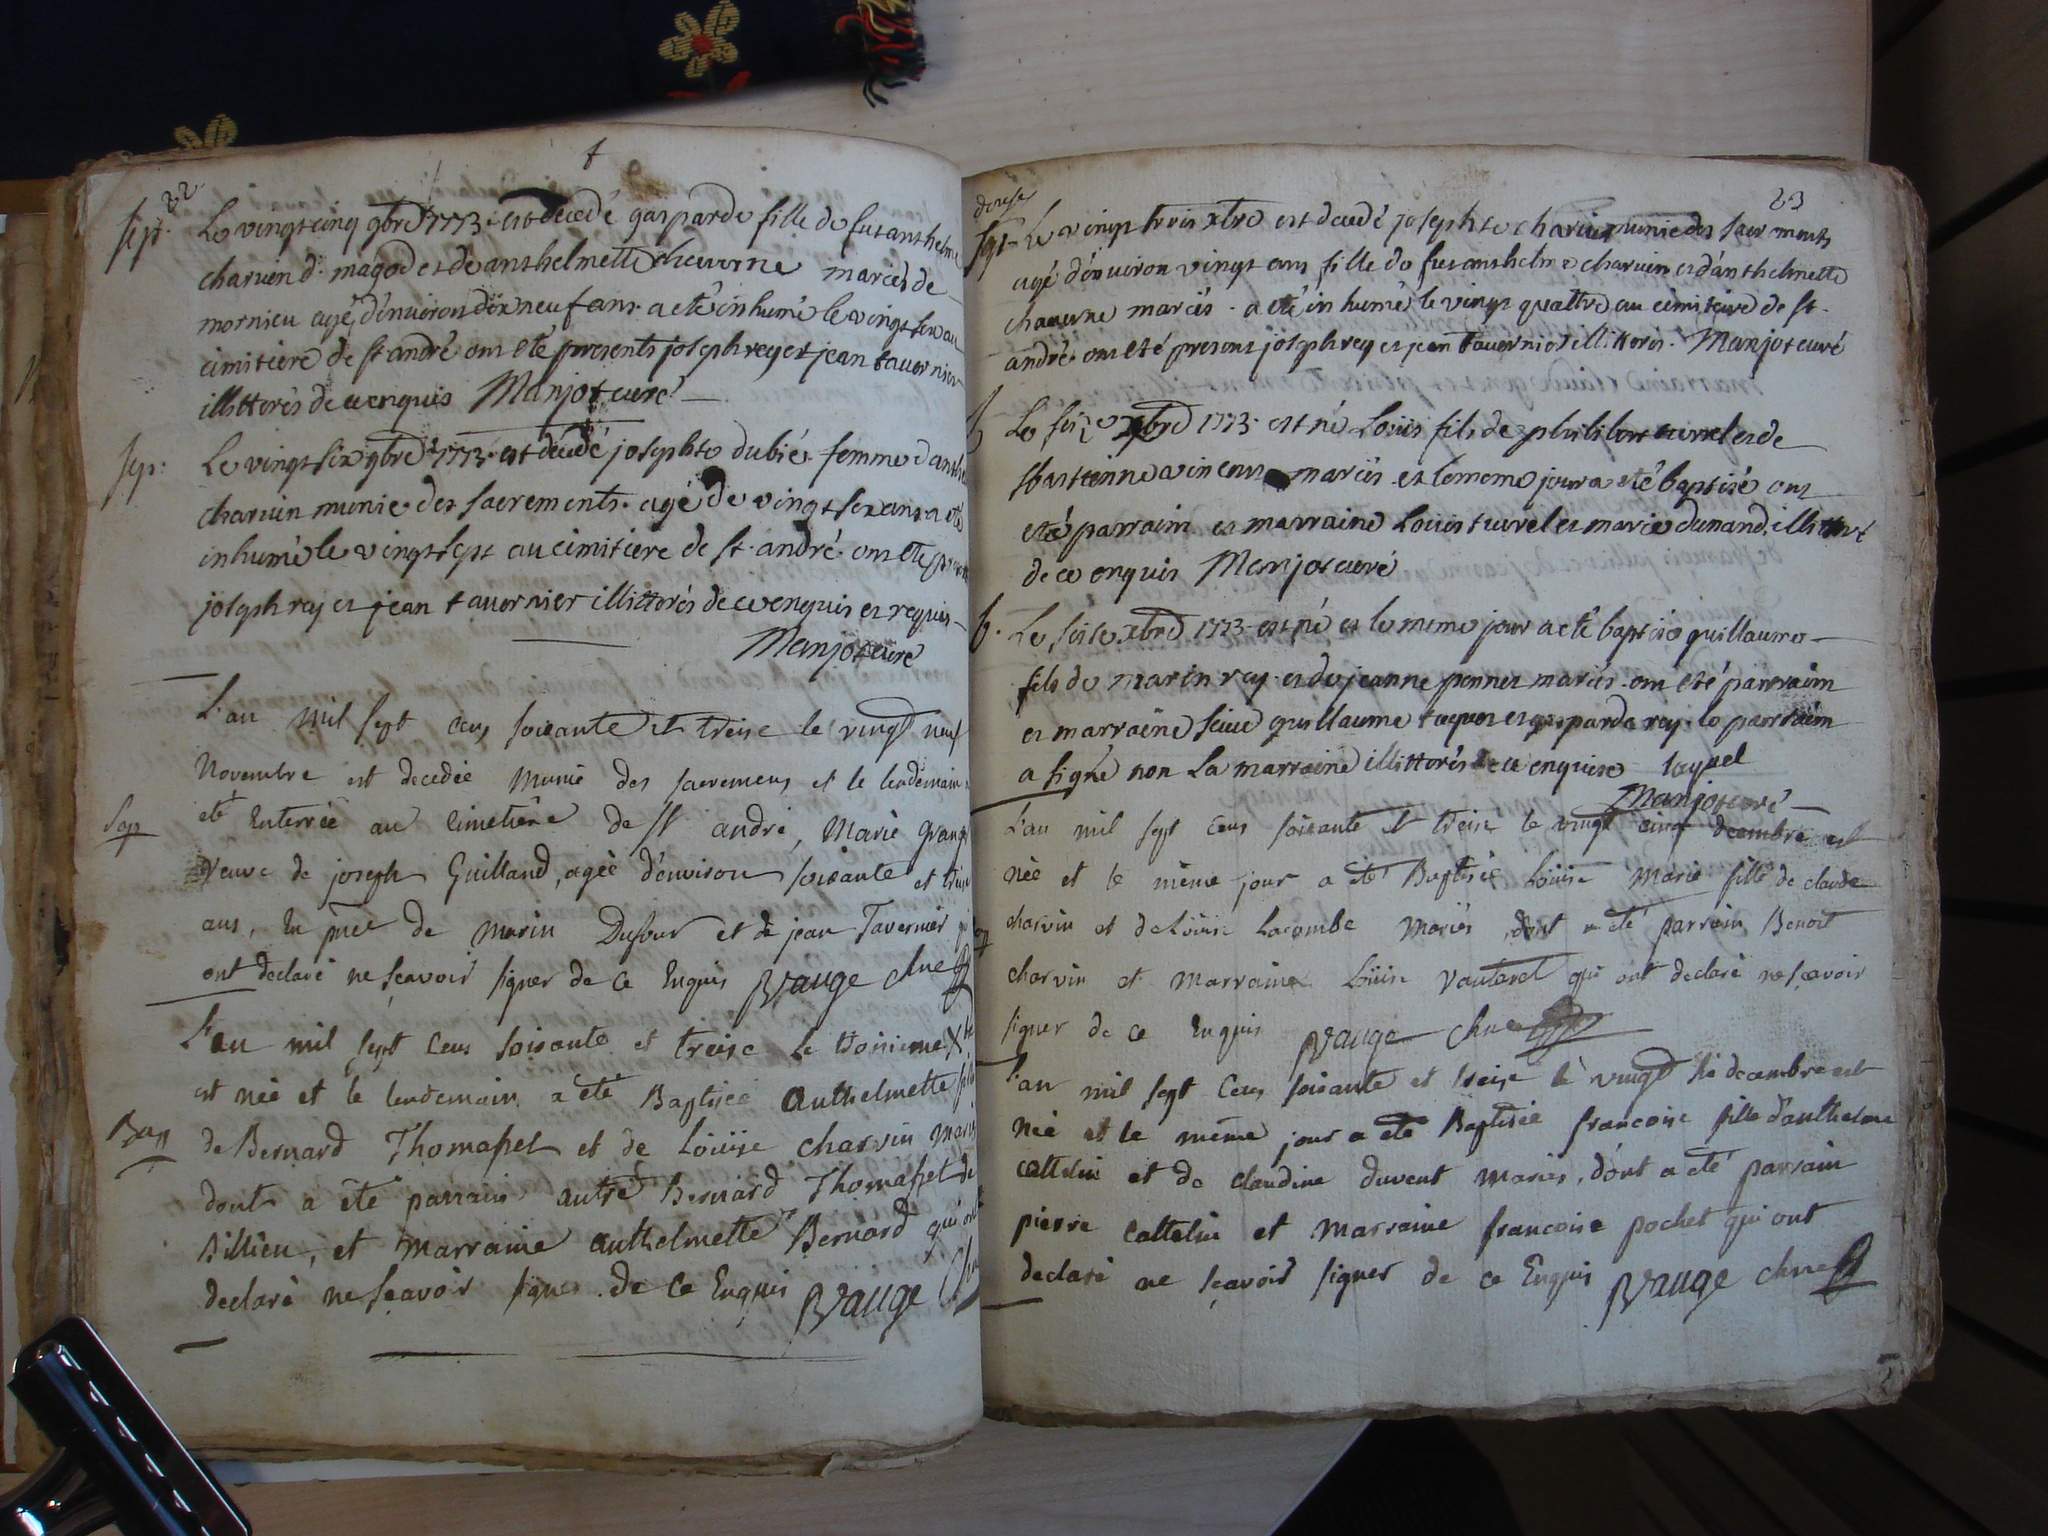 22
sept. Le vingt cinq 9bre 1773 est decedé gasparde fille de fut anthelme
charvin d. magod et de anthelmette chevrone mariés de
mornieu agé d'environ dix neuf ans a eté inhumé le vingt six au
cimitiere de st andré ont eté presents joseph rey et jean tavernier
illitterés de ce enquis Manjot curé
sep: Le vingt six 9bre 1773 est decedé josephte dubié femme d'anthel
charvin munie des sacrements agé de vingt six ans a eté
inhumé le vingt sept au cimitiere de st. andré ont eté
joseph rey et jean tavernier illitterés de ce enquis et requis
Manjot curé
L'an mil sept cens soixante et treise le vingt neuf
Novembre est decedée Munie des sacremens et le lendemain
Sep eté Enterrée au Cimetiére de St andré, Marie
veuve de joseph Guilland, agée d'environ soixante et treise
ans, En pnce de Marin Dufour et de jean Tavernier
ont declaré ne sçavoir signer de ce Enquis Vauge
L'an mil sept Cens soixante et treise Le troisieme Xbre
est née et le lendemain a été Baptisée Anthelmette
Bap de Bernard Thomasset et de Loüise charvin
dont a ête parrain autre Bernard Thomasset de
Billieu, et Marraine anthelmette Bernard qui ont
declaré ne sçavoir signer de Ce Enquis Vauge
23
douse
sept Le vingt trois xbre est decedé josephte charvin munie des sacrements
agé d'environ vingt ans fille de fut anthelme charvin et d'anthelmette
chavurne mariés a eté inhumé le vingt quattre au cimitiere de st.
andré ont eté present joseph rey et jean tavernier illitterés. Manjot curé
b Le seize xbre 1773 est né Loüis fils de philibert turrel et de
mariés et le meme jour a eté baptisé ont
eté parrain et marraine Loüis turrel et marie dunand illitteré
de ce enquis Manjot curé
b. Le seise xbre 1773 est né et le meme jour a eté baptisé guillaume
fils de marin rey et de jeanne ponnet mariés ont eté parrain
et marraine sieur guillaume taquet et gasparde rey le parrain
a signé non La marraine illitterés de ce enquise taquet
Manjot curé
L'an mil sept Cens soixante et treise le vingt cinq decembre est
née et le même jour a été Baptisée Loüise Marie fille de claude
charvin et de Loüise Lacombe Mariés dont a été parrain Benoit
charvin et Marraine Loüise Vautaret qui ont declaré ne sçavoir
signer de ce Enquis Vauge
L'an mil sept Cens soixante et treise le vingt six decembre est
Née et le même jour a eté Baptisée francoise fille d'anthelme
cattelin et de claudine duvent Mariés, dont a été parrain
pierre cattelin et Marraine francoise pochet qui ont
declaré ne sçavoir signer de ce Enquis Vauge